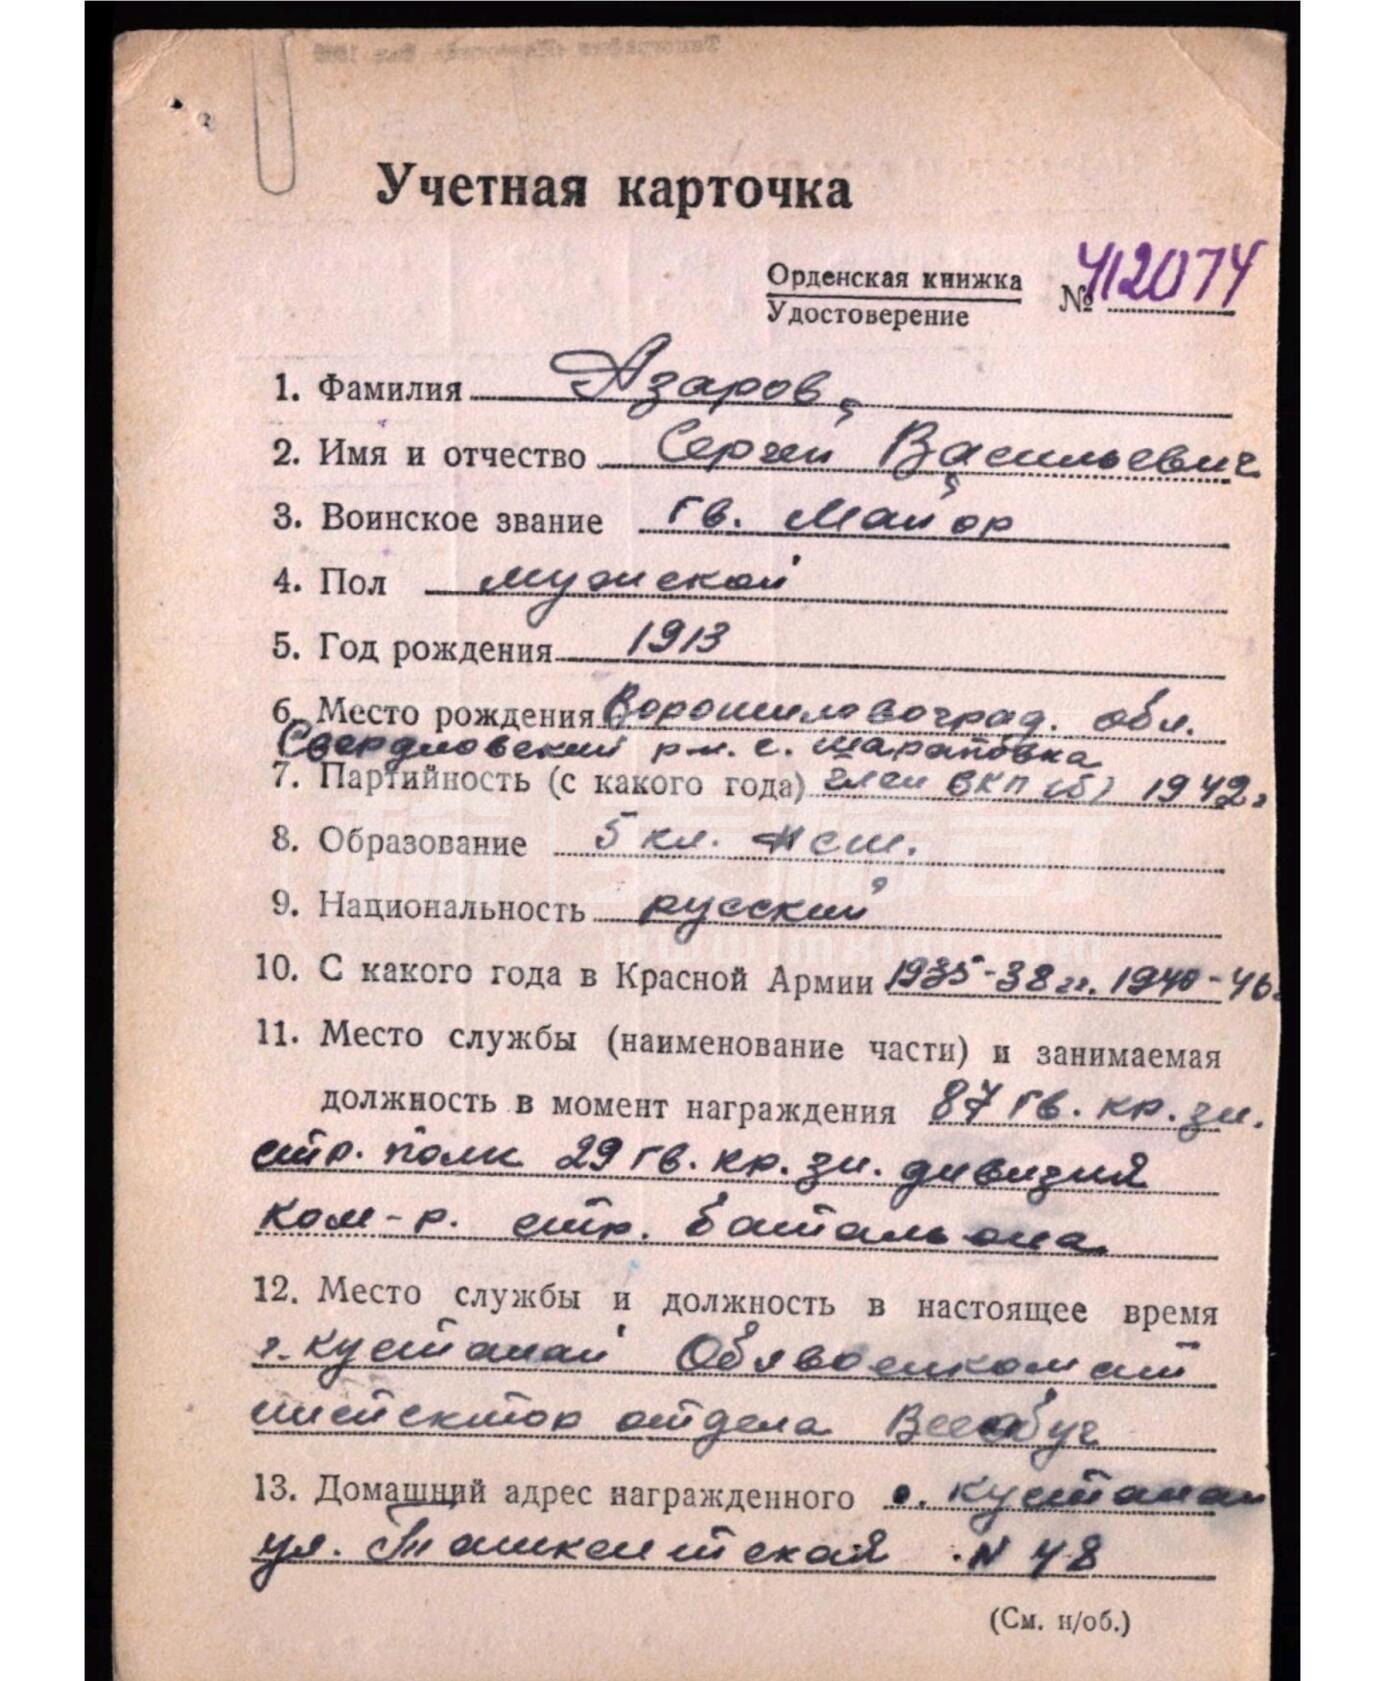 Учетная карточка
Орденская книжка № 412074
Удостоверение
1. Фамилия Азаров,
2. Имя и отчество Сергей Васильевич
3. Воинское звание гв. Майор
4. Пол мужской
5. Год рождения 1913
6. Место рождения Ворошиловоград. обл.
Свердловский р-н. с. Шараповка
7. Партийность (с какого года) член ВКП(б) 1942г
8. Образование 5 кл. нсш.
9. Национальность русский
10. С какого года в Красной Армии 1935-38гг. 1940-46г
11. Место службы (наименование части) и занимаемая
должность в момент награждения 87 гв. кр. зн.
стр. полк 29 гв. кр. зн. дивизий
ком-р. стр. батальона
12. Место службы и должность в настоящее время
г. Кустанай Облвоенкомат
инспектор отдела Всеобуч
13. Домашний адрес награжденного г. Кустанай
ул. Ташкентской N 48
(См. н/об.)